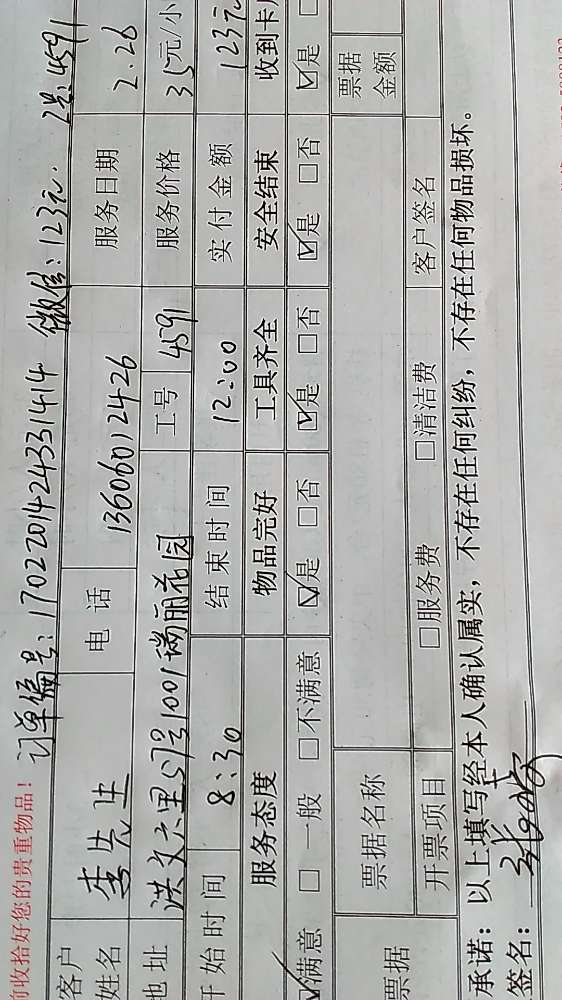 前收拾好您的贵重物品!
订单编号:1702201424331414 微信:123元. 工号:4591
客户姓名 李先生 电话 13606012426 服务日期 2.26
地址 洪文六里57号1001瑞丽花园 工号 4591 服务价格 35元/小
开始时间 8:30 结束时间 12:00 实付金额 123元
服务态度 物品完好 工具齐全 安全结束 收到卡
☑满意 □一般 □不满意 ☑是 □否 ☑是 □否 ☑是 □否 ☑是 □
票据 票据名称 票据金额
开票项目 □服务费 □清洁费 客户签名
承诺:以上填写经本人确认属实,不存在任何纠纷,不存在任何物品损坏。
签名: